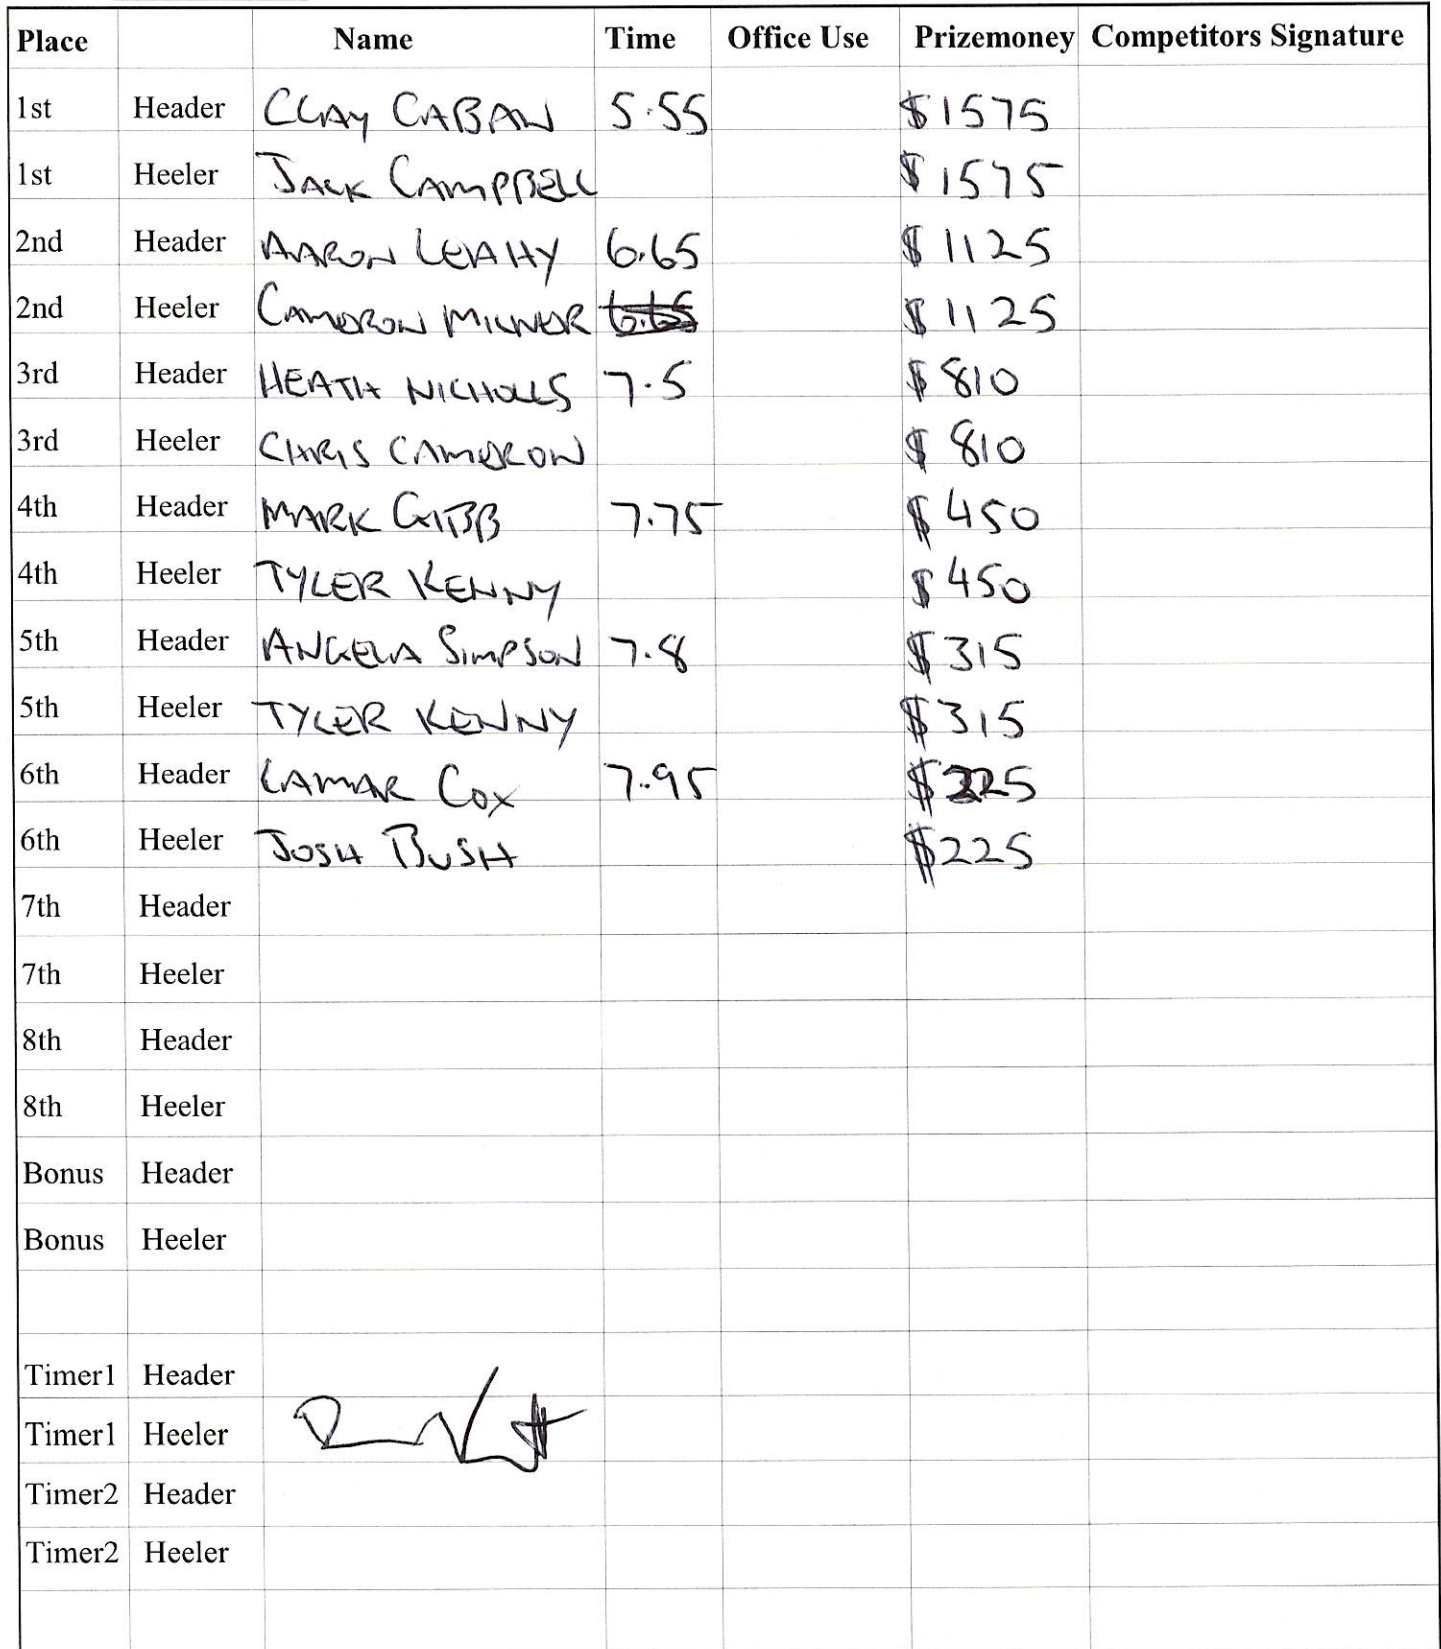 Place Name Time Office Use Prizemoney Competitors Signature
1st Header CLAY CABAN 5.55 $1575
1st Heeler JACK CAMPBELL $1575
2nd Header AARON LEAHY 6.65 $1125
2nd Heeler CAMERON MILNER 6.65 $1125
3rd Header HEATH NICHOLLS 7.5 $810
3rd Heeler CHRIS CAMERON $810
4th Header MARK GIBB 7.75 $450
4th Heeler TYLER KENNY $450
5th Header ANGELA SIMPSON 7.8 $315
5th Heeler TYLER KENNY $315
6th Header LAMAR COX 7.95 $225
6th Heeler JOSH BUSH $225
7th Header
7th Heeler
8th Header
8th Heeler
Bonus Header
Bonus Heeler
Timer1 Header
Timer1 Heeler
Timer2 Header
Timer2 Heeler